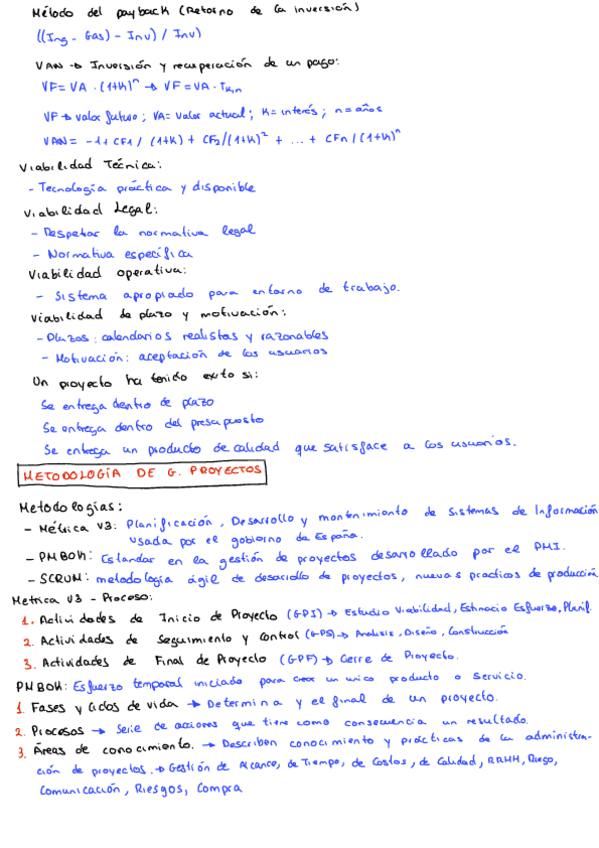 Método del payback (Retorno de la inversión)
((Ing - Gas) - Inv) / Inv)
VAN → Inversión y recuperación de un pago:
VF = VA · (1+K)^n → VF = VA · TK,n
VF → valor futuro; VA = valor actual; K = interés; n = años
VAN = -1 + CF1 / (1+K) + CF2/(1+K)^2 + ... + CFn / (1+K)^n
Viabilidad Técnica:
- Tecnología práctica y disponible
Viabilidad Legal:
- Respetar la normativa legal
- Normativa específica
Viabilidad operativa:
- Sistema apropiado para entorno de trabajo.
Viabilidad de plazo y motivación:
- Plazos: calendarios realistas y razonables
- Motivación: aceptación de los usuarios
Un proyecto ha tenido exito si:
Se entrega dentro de plazo
Se entrega dentro del presupuesto
Se entrega un producto de calidad que satisface a los usuarios.
METODOLOGÍA DE G. PROYECTOS
Metodologías:
- Métrica V3: Planificación, Desarrollo y mantenimiento de sistemas de Información
usada por el gobierno de España.
- PMBOK: Estandar en la gestión de proyectos desarrollado por el PMI.
- SCRUM: metodología ágil de desarrollo de proyectos, nuevas practicas de producción
Metrica V3 - Proceso:
1. Actividades de Inicio de Proyecto (GPI) → Estudio Viabilidad, Estimacio Esfuerzo, Planif.
2. Actividades de Seguimiento y Control (GPS) → Analisis, Diseño, Construcción
3. Actividades de Final de Proyecto (GPF) → Cierre de Proyecto.
PMBOK: Esfuerzo temporal iniciado para crear un unico producto o servicio.
1. Fases y Ciclos de vida → Determina y el final de un proyecto.
2. Procesos → Serie de acciones que tiene como consecuencia un resultado.
3. Áreas de conocimiento. → Describen conocimiento y prácticas de la administra-
ción de proyectos. → Gestión de Alcance, de Tiempo, de Costos, de Calidad, RRHH, Riesgo,
Comunicación, Riesgos, Compra